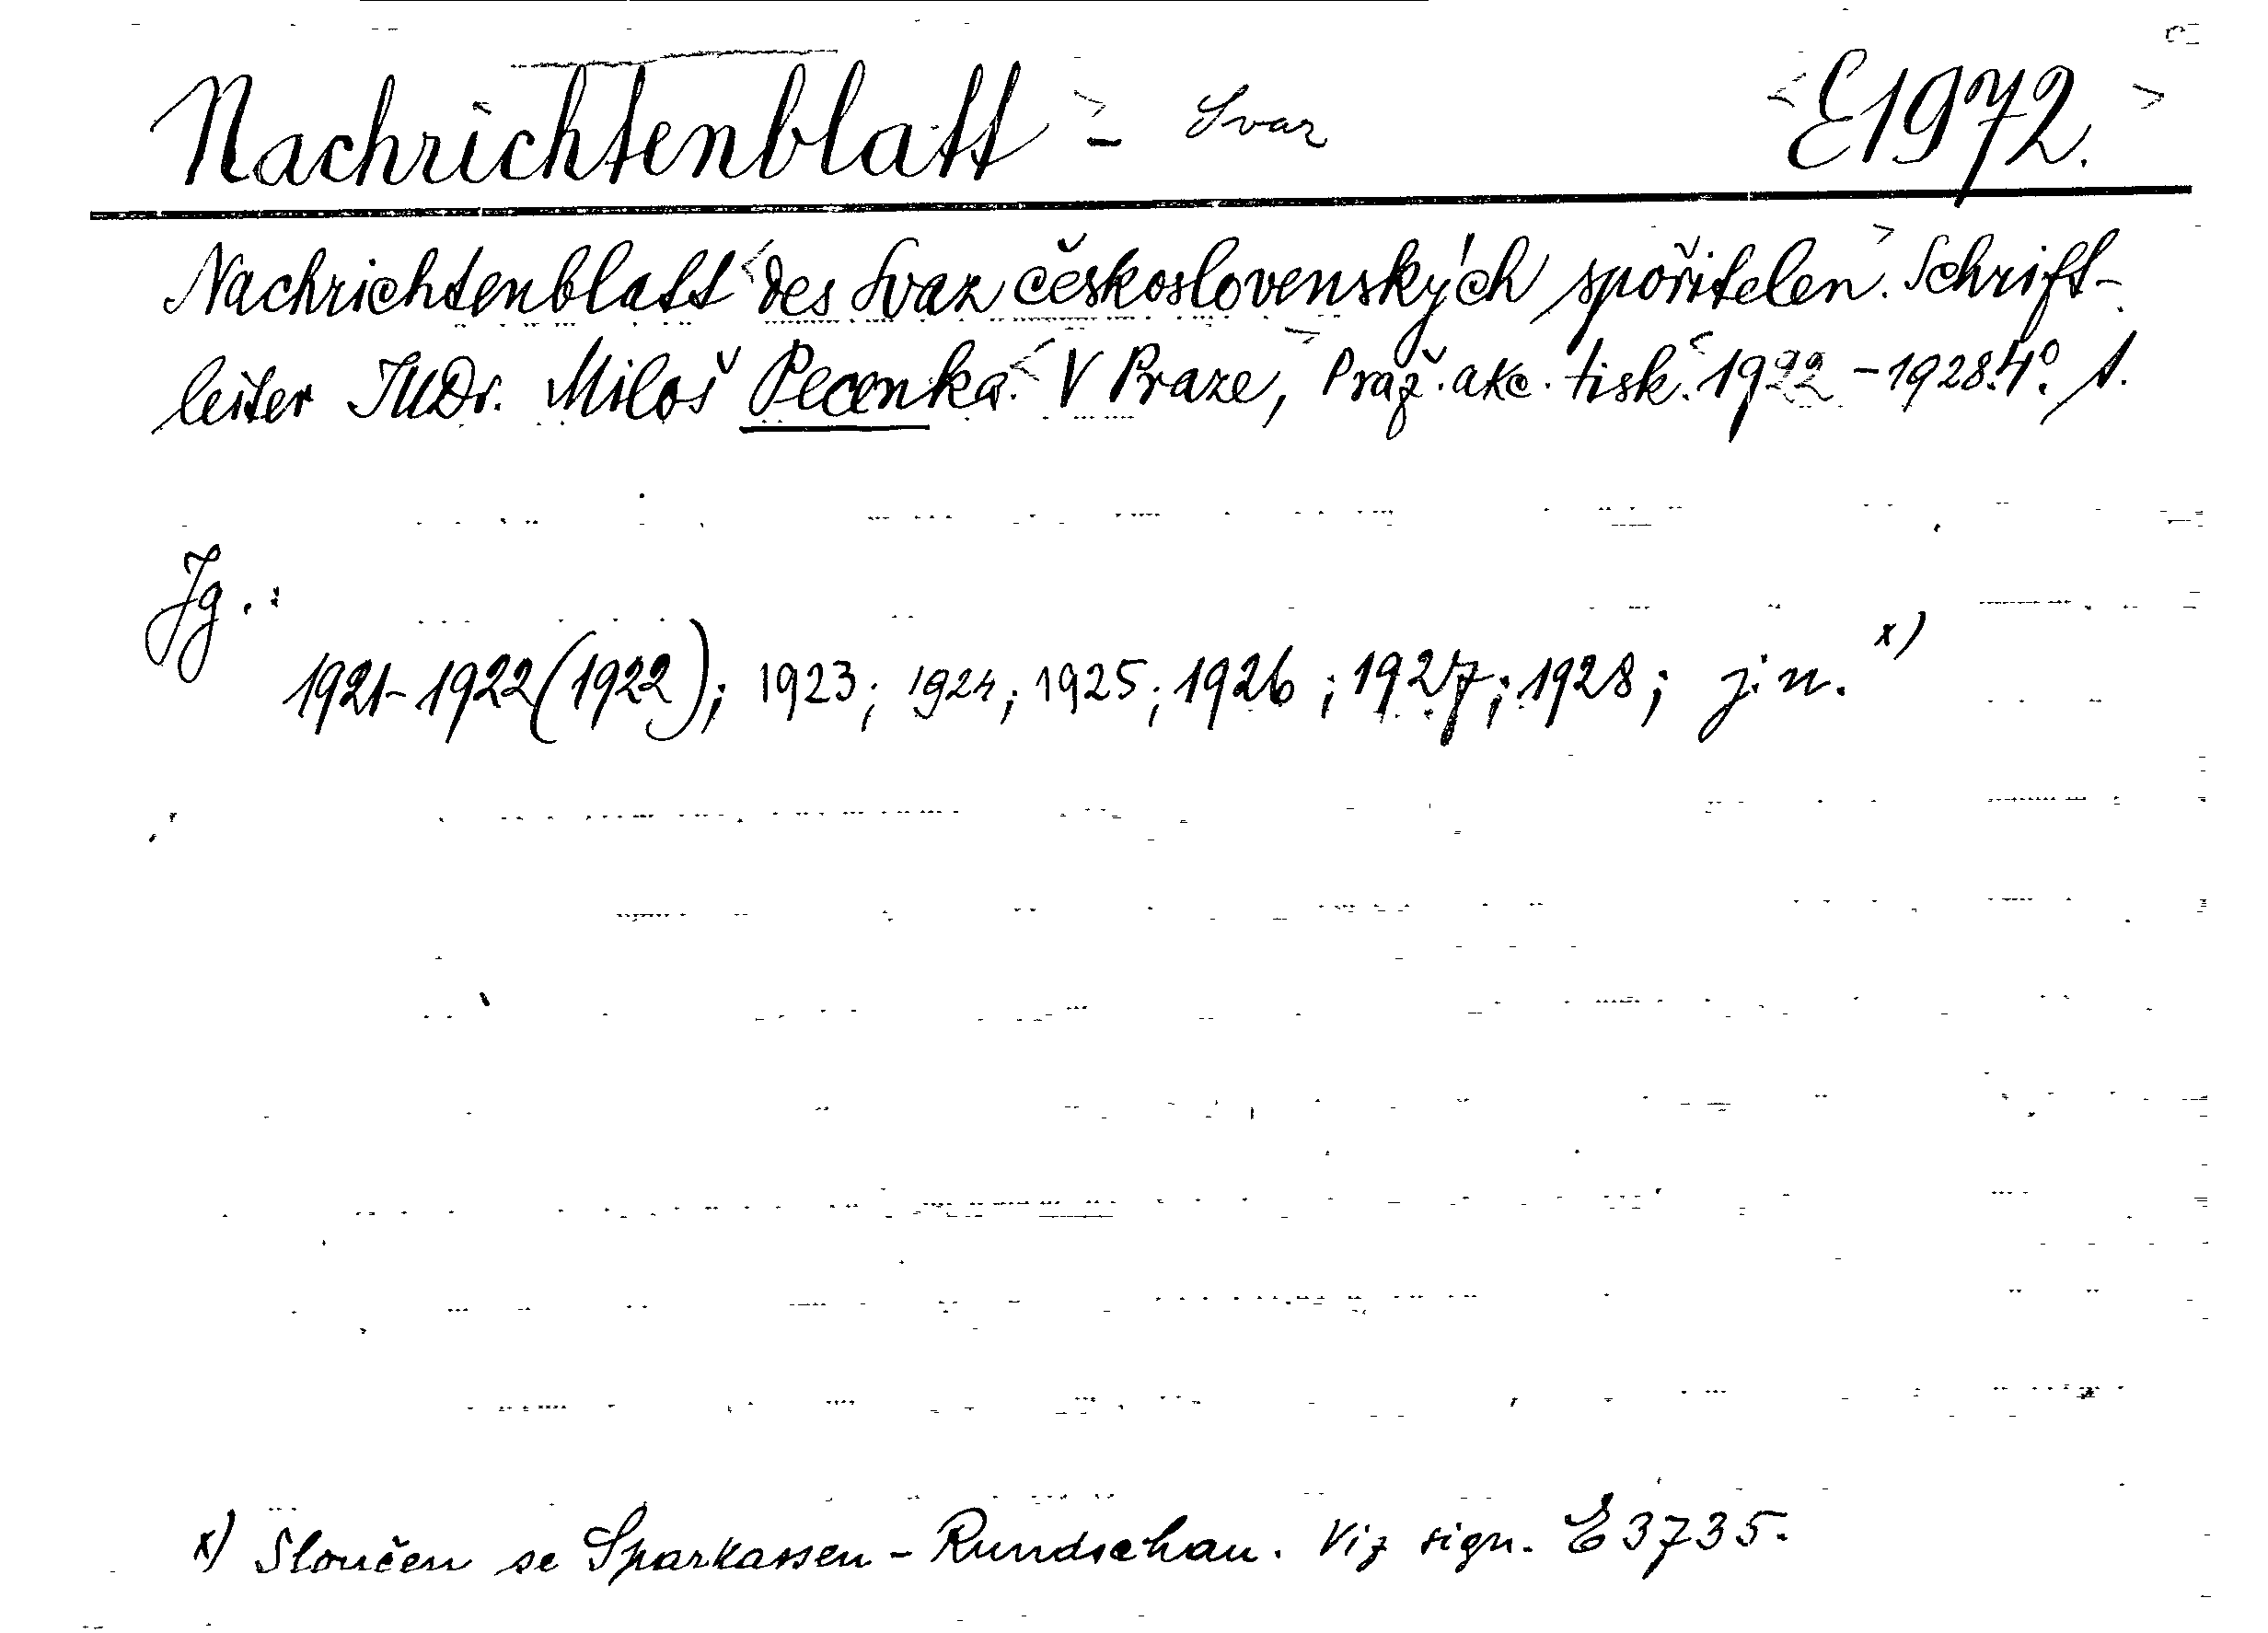 Nachrichtenblatt - Svaz E1972.
Nachrichtenblatt des Svaz československých spořitelen. Schrift-
leiter JUDr. Miloš Pecenka. V Praze, Praž. akc. tisk. 1922 - 1928. 4°. 1.
Jg.:
1921-1922 (1922); 1923; 1924; 1925; 1926; 1927; 1928; j. n. x)
x) Sloučen se Sparkassen-Rundschau. Viz sign. E 3735.